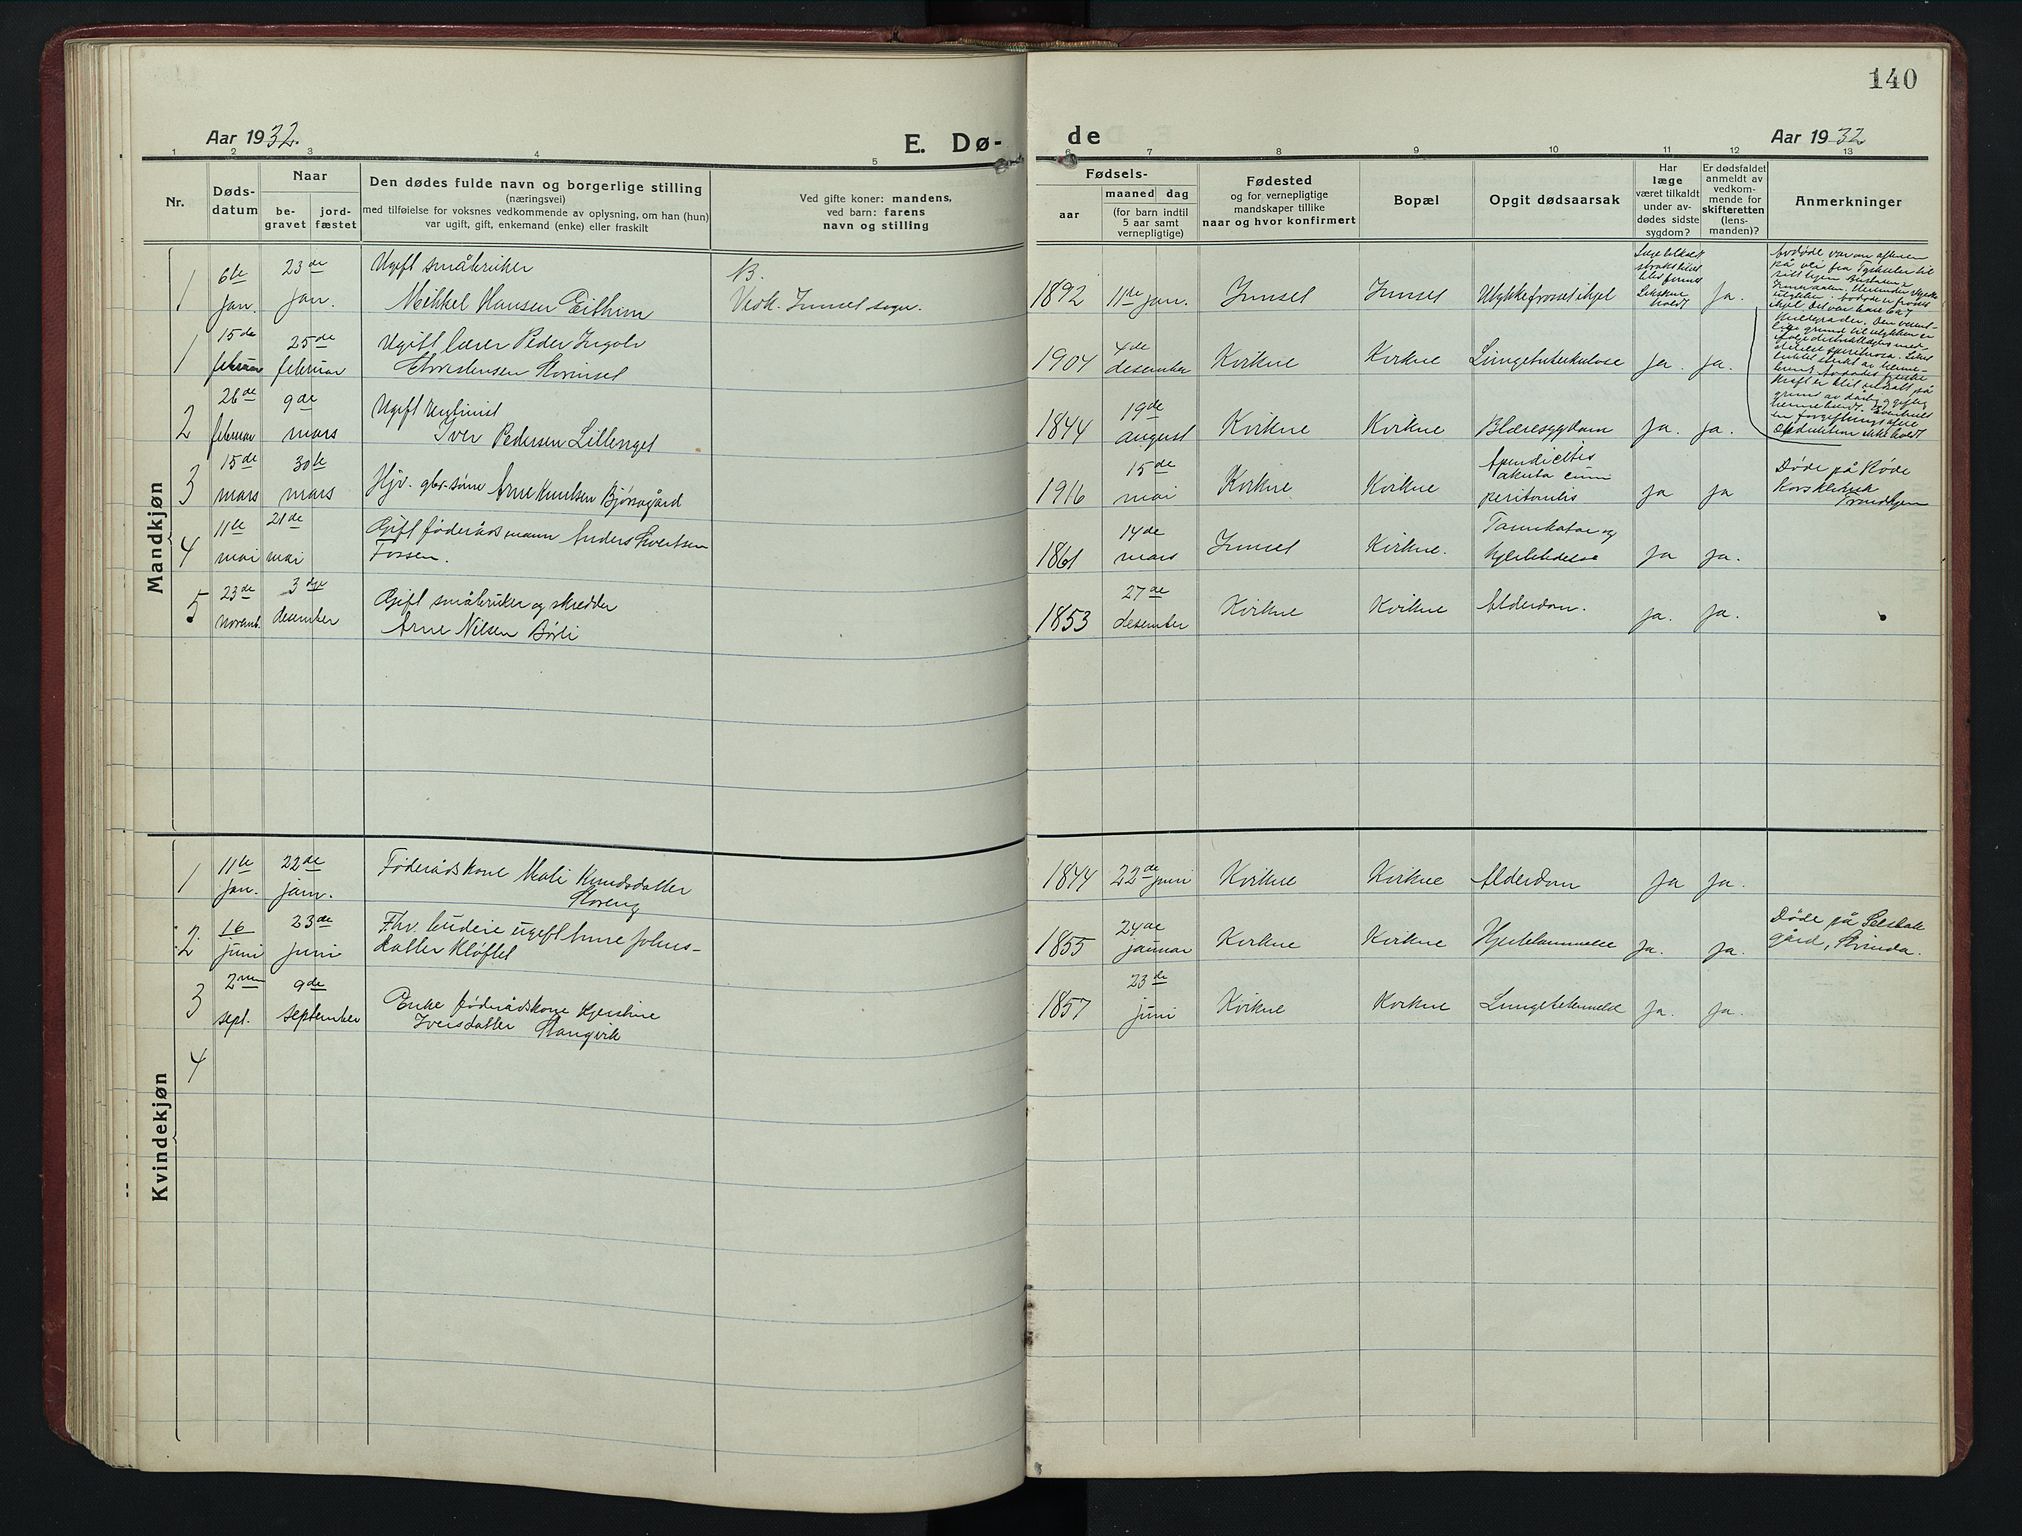 140
Aar 1932.
E. Dø-
de
Aar 1932
1 2 3 4 5 6 7 8 9 10 11 12 13
Nr.
Døds-
datum
Naar
be-
gravet
jord-
fæstet
Den dødes fulde navn og borgerlige stilling
(næringsvei)
med tilføielse for voksnes vedkommende av oplysning, om han (hun)
var ugift, gift, enkemand (enke) eller fraskilt
Ved gifte koner: mandens,
ved barn: farens
navn og stilling
Fødsels-
aar
maaned dag
(for barn indtil
5 aar samt
vernepligtige)
Fødested
og for vernepligtige
mandskaper tillike
naar og hvor konfirmert
Bopæl
Opgit dødsaarsak
Har
læge
været tilkaldt
under av-
dødes sidste
sygdom?
Er dødsfaldet
anmeldt av
vedkom-
mende for
skifteretten
(lens-
manden)?
Anmerkninger
Mandkjøn
1
6te
jan.
23de
jan.
Ugift småbruker
Mikkel Hansen Eithun
N.
Vedk. Innset sogn.
1892
11de jan.
Innset
Innset
Ulykke frosset ihjel
Ja.
1
15de
februar
25de
februar
Ugift lærer Peder Ingolv
Christensen Storinset
1904
4de
desember
Kvikne
Kvikne
Lungetuberkulose
ja.
ja.
2
26de
februar
9de
mars
Ugift
Iver Pedersen Lillenget
1844
19de
august
Kvikne
Kvikne
Blæresygdom
ja.
ja.
3
15de
mars
30te
mars
Hjv. gbr. sønn Arne Knutsen Bjørsagård
1916
15de
mai
Kvikne
Kvikne
Apendicitis
akuta cum
peritonitis
ja
ja
Døde på Røde
kors klinik
Trondhjem
4
11te
mai
21de
mai
Gift føderådsmann Anders Sivertsen
Fossen.
1861
14de
mars
Innset
Kvikne.
Tarmkatar og
hjertelidelse
ja
ja.
5
23de
novemb.
3dje
desember
Gift småbruker og skredder
Arne Nilsen Børli
1853
27de
desember
Kvikne
Kvikne
Alderdom.
ja.
ja.
Kvindekjøn
1
11te
jan.
22de
jan.
Føderådskone Mali Knudsdatter
Storeng
1844
22de juni
Kvikne
Kvikne
Alderdom
ja
ja.
2
16
juni
23de
juni
Fhv. budeie ugift Anne Johns-
datter Kløftet
1855
24de
januar
Kvikne
Kvikne
Hjertelammelse
ja.
ja.
Døde på Selsbak
gård, Strinda.
3
2nen
sept.
9de
september
Enke føderådskone Kjerstine
Iversdatter Stangvik
1857
23de
juni
Kvikne
Kvikne
Lungebetennelse
ja.
ja.
4